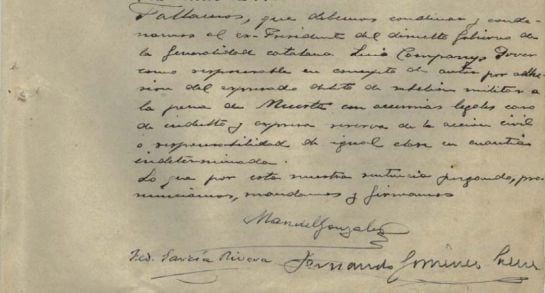 Fallamos, que debemos condenar y conde-
namos al ex-Presidente del dimitido Gobierno de
la Generalidad catalana Luis Companys Jover
como responsable en concepto de autor por adhe-
sion del expresado delito de rebelión militar a
la pena de Muerte con accesorias legales caso
de indulto y expresa reserva de la acción civil
o responsabilidad de igual clase en cuantia
indeterminada.
Lo que por esta nuestra sentencia juzgando, pro-
nunciamos, mandamos y firmamos
Manuel Gonzalez
Fed. García Rivera Fernando Giménez